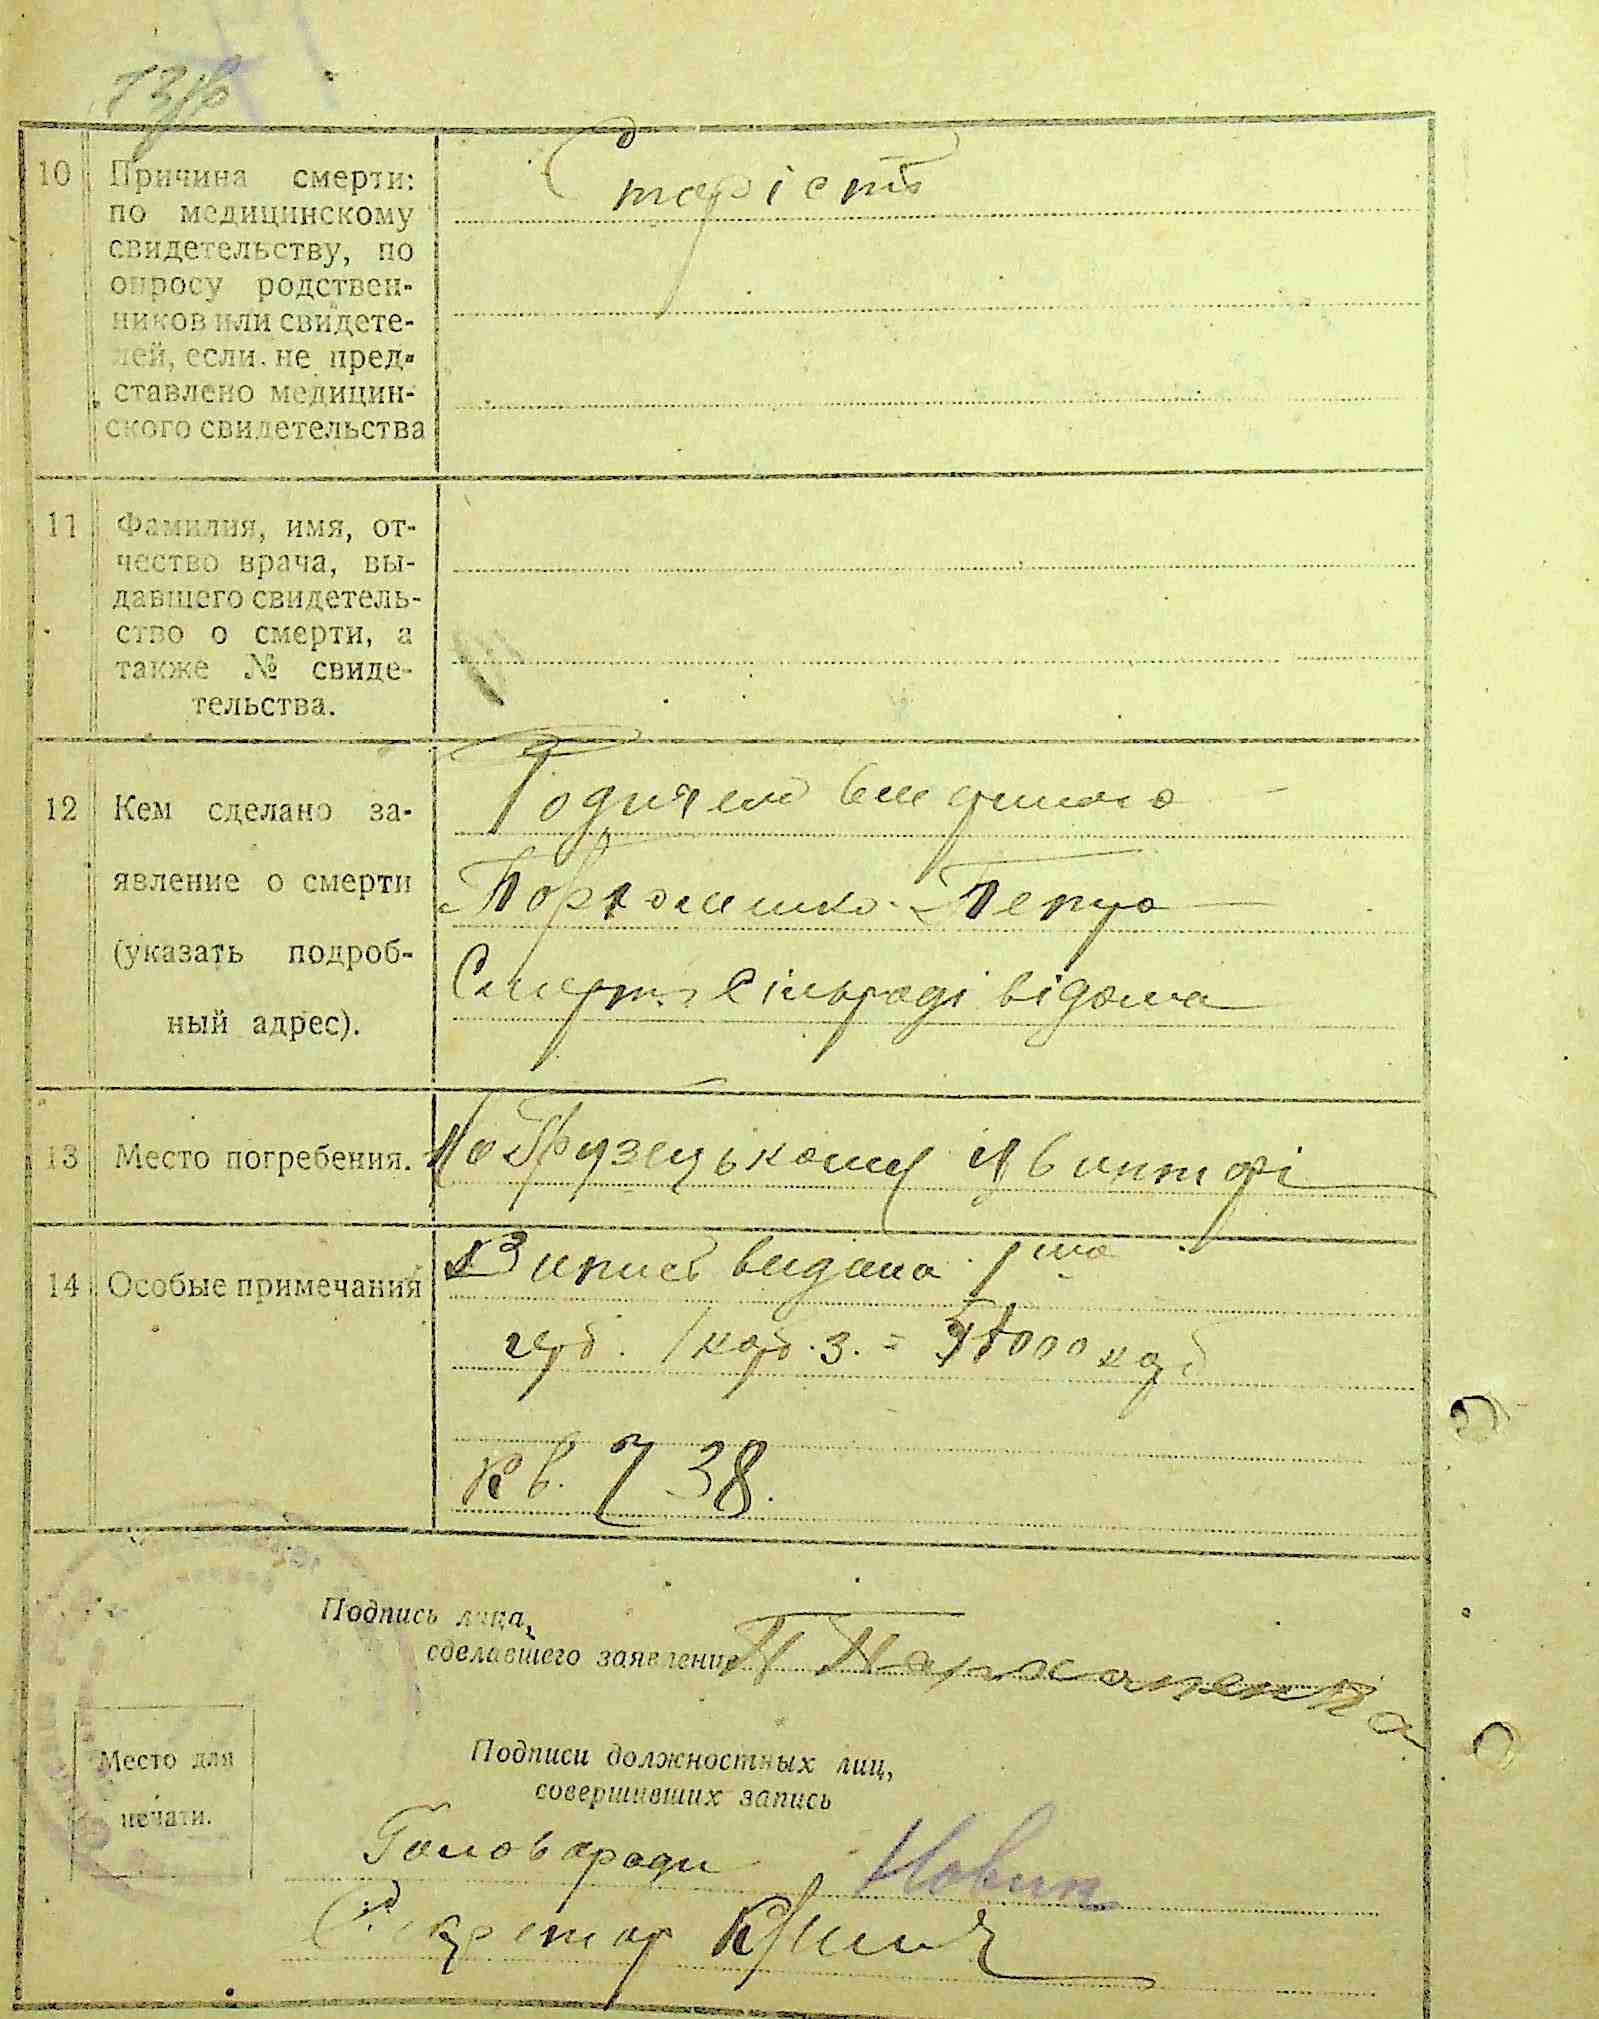 10 Причина смерти:
по медицинскому
свидетельству, по
опросу родствен-
ников или свидете-
лей, если не пред-
ставлено медицин-
ского свидетельства
Старість
11 Фамилия, имя, от-
чество врача, вы-
давшего свидетель-
ство о смерти, а
также № свиде-
тельства.
12 Кем сделано за-
явление о смерти
(указать подроб-
ный адрес).
Родичем
Петро
Смерть сільраді відома
13 Место погребения.
цвинтарі
14 Особые примечания
Випись видана 1
герб. 1 карб. з. =
кв. 738.
Подпись лица,
сделавшего заявление
П Пархоменко
Место для
печати.
Подписи должностных лиц,
совершивших запись
Голова ради Новик
Секретар